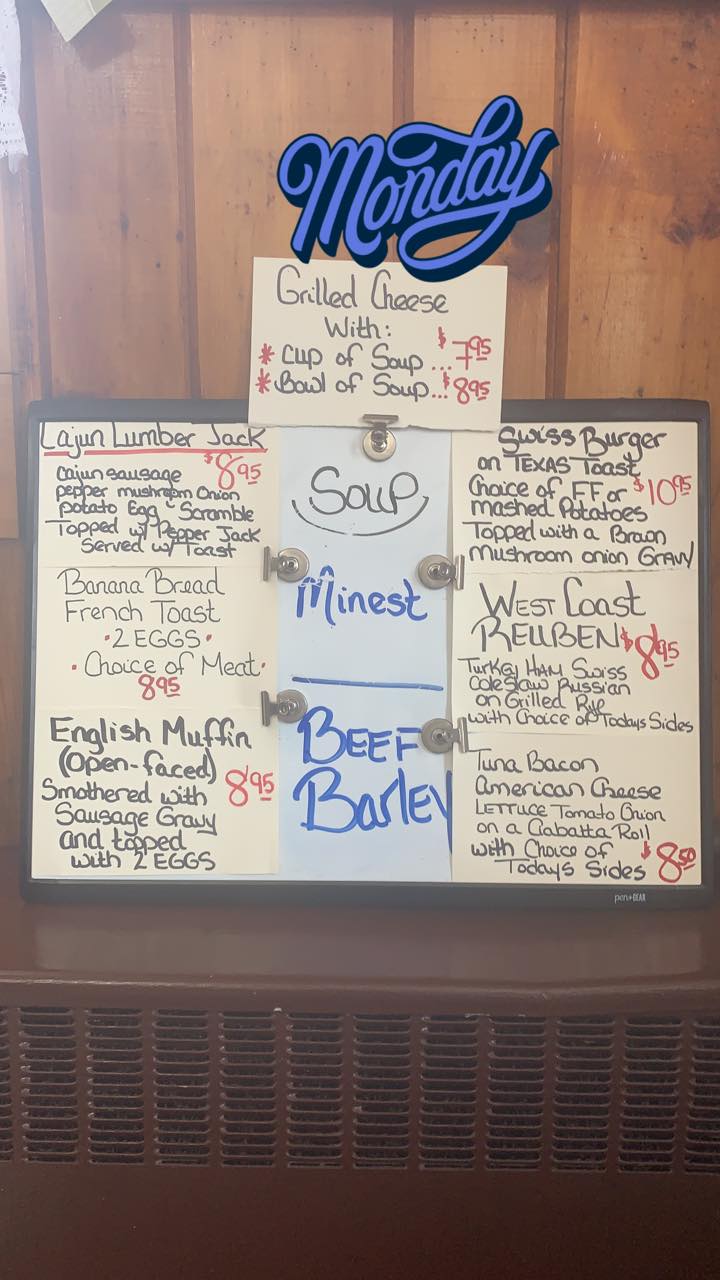 Monday
Grilled Cheese
With:
* Cup of Soup ... $7.95
* Bowl of Soup... $8.95
Cajun Lumber Jack
$8.95
Cajun sausage
pepper mushroom Onion
potato Egg Scramble
Topped w/ Pepper Jack
Served w/ Toast
Banana Bread
French Toast
• 2 EGGS •
• Choice of Meat •
8.95
English Muffin
(Open-faced)
Smothered with 8.95
Sausage Gravy
and topped
with 2 EGGS
Soup
Minest
BEEF
Barley
Swiss Burger
on TEXAS Toast
Choice of FF or $10.95
mashed Potatoes
Topped with a Brown
Mushroom onion GRAVY
WEST Coast
REUBEN $8.95
Turkey HAM Swiss
Coleslaw Russian
on Grilled Rye
with Choice of Todays Sides
Tuna Bacon
American Cheese
LETTUCE Tomato Onion
on a Ciabatta Roll
with Choice of
Today's Sides $8.50
pen+GEAR